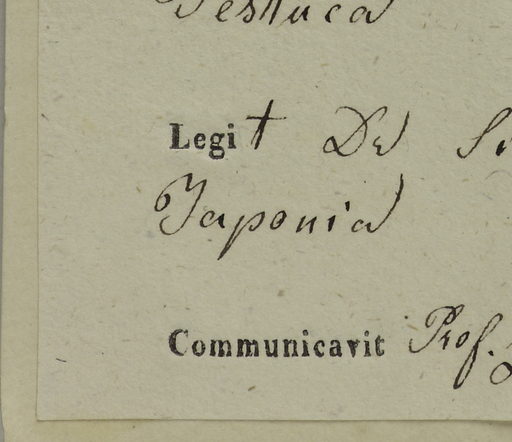 Festuca
Legit Dr Si
Japonia
Communicavit Prof.